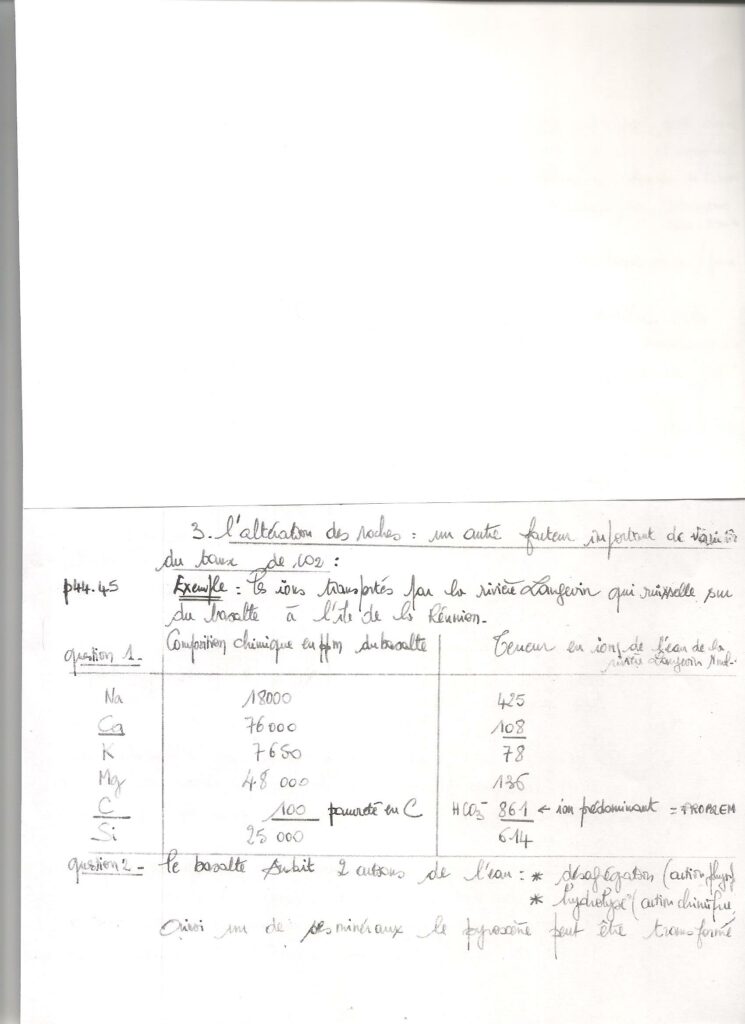 3. l'altération des roches : un autre facteur important de variati
du taux de CO2 :
p44.45 Exemple : les ions transportés par la rivière Langevin qui ruisselle sur
du basalte à l'île de la Réunion.
question 1_ Composition chimique en ppm du basalte Teneur en ions de l'eau de la
rivière Langevin
Na 18000 425
Ca 76000 108
K 7650 78
Mg 48 000 136
C 100 pauvreté en C HCO3- 861 ← ion prédominant = PROBLEM
Si 25 000 614
question 2_ Le basalte subit 2 actions de l'eau : * désagrégation (action phys
* hydrolyse (action chimique
Ainsi un de ses minéraux le pyroxène peut être transformé